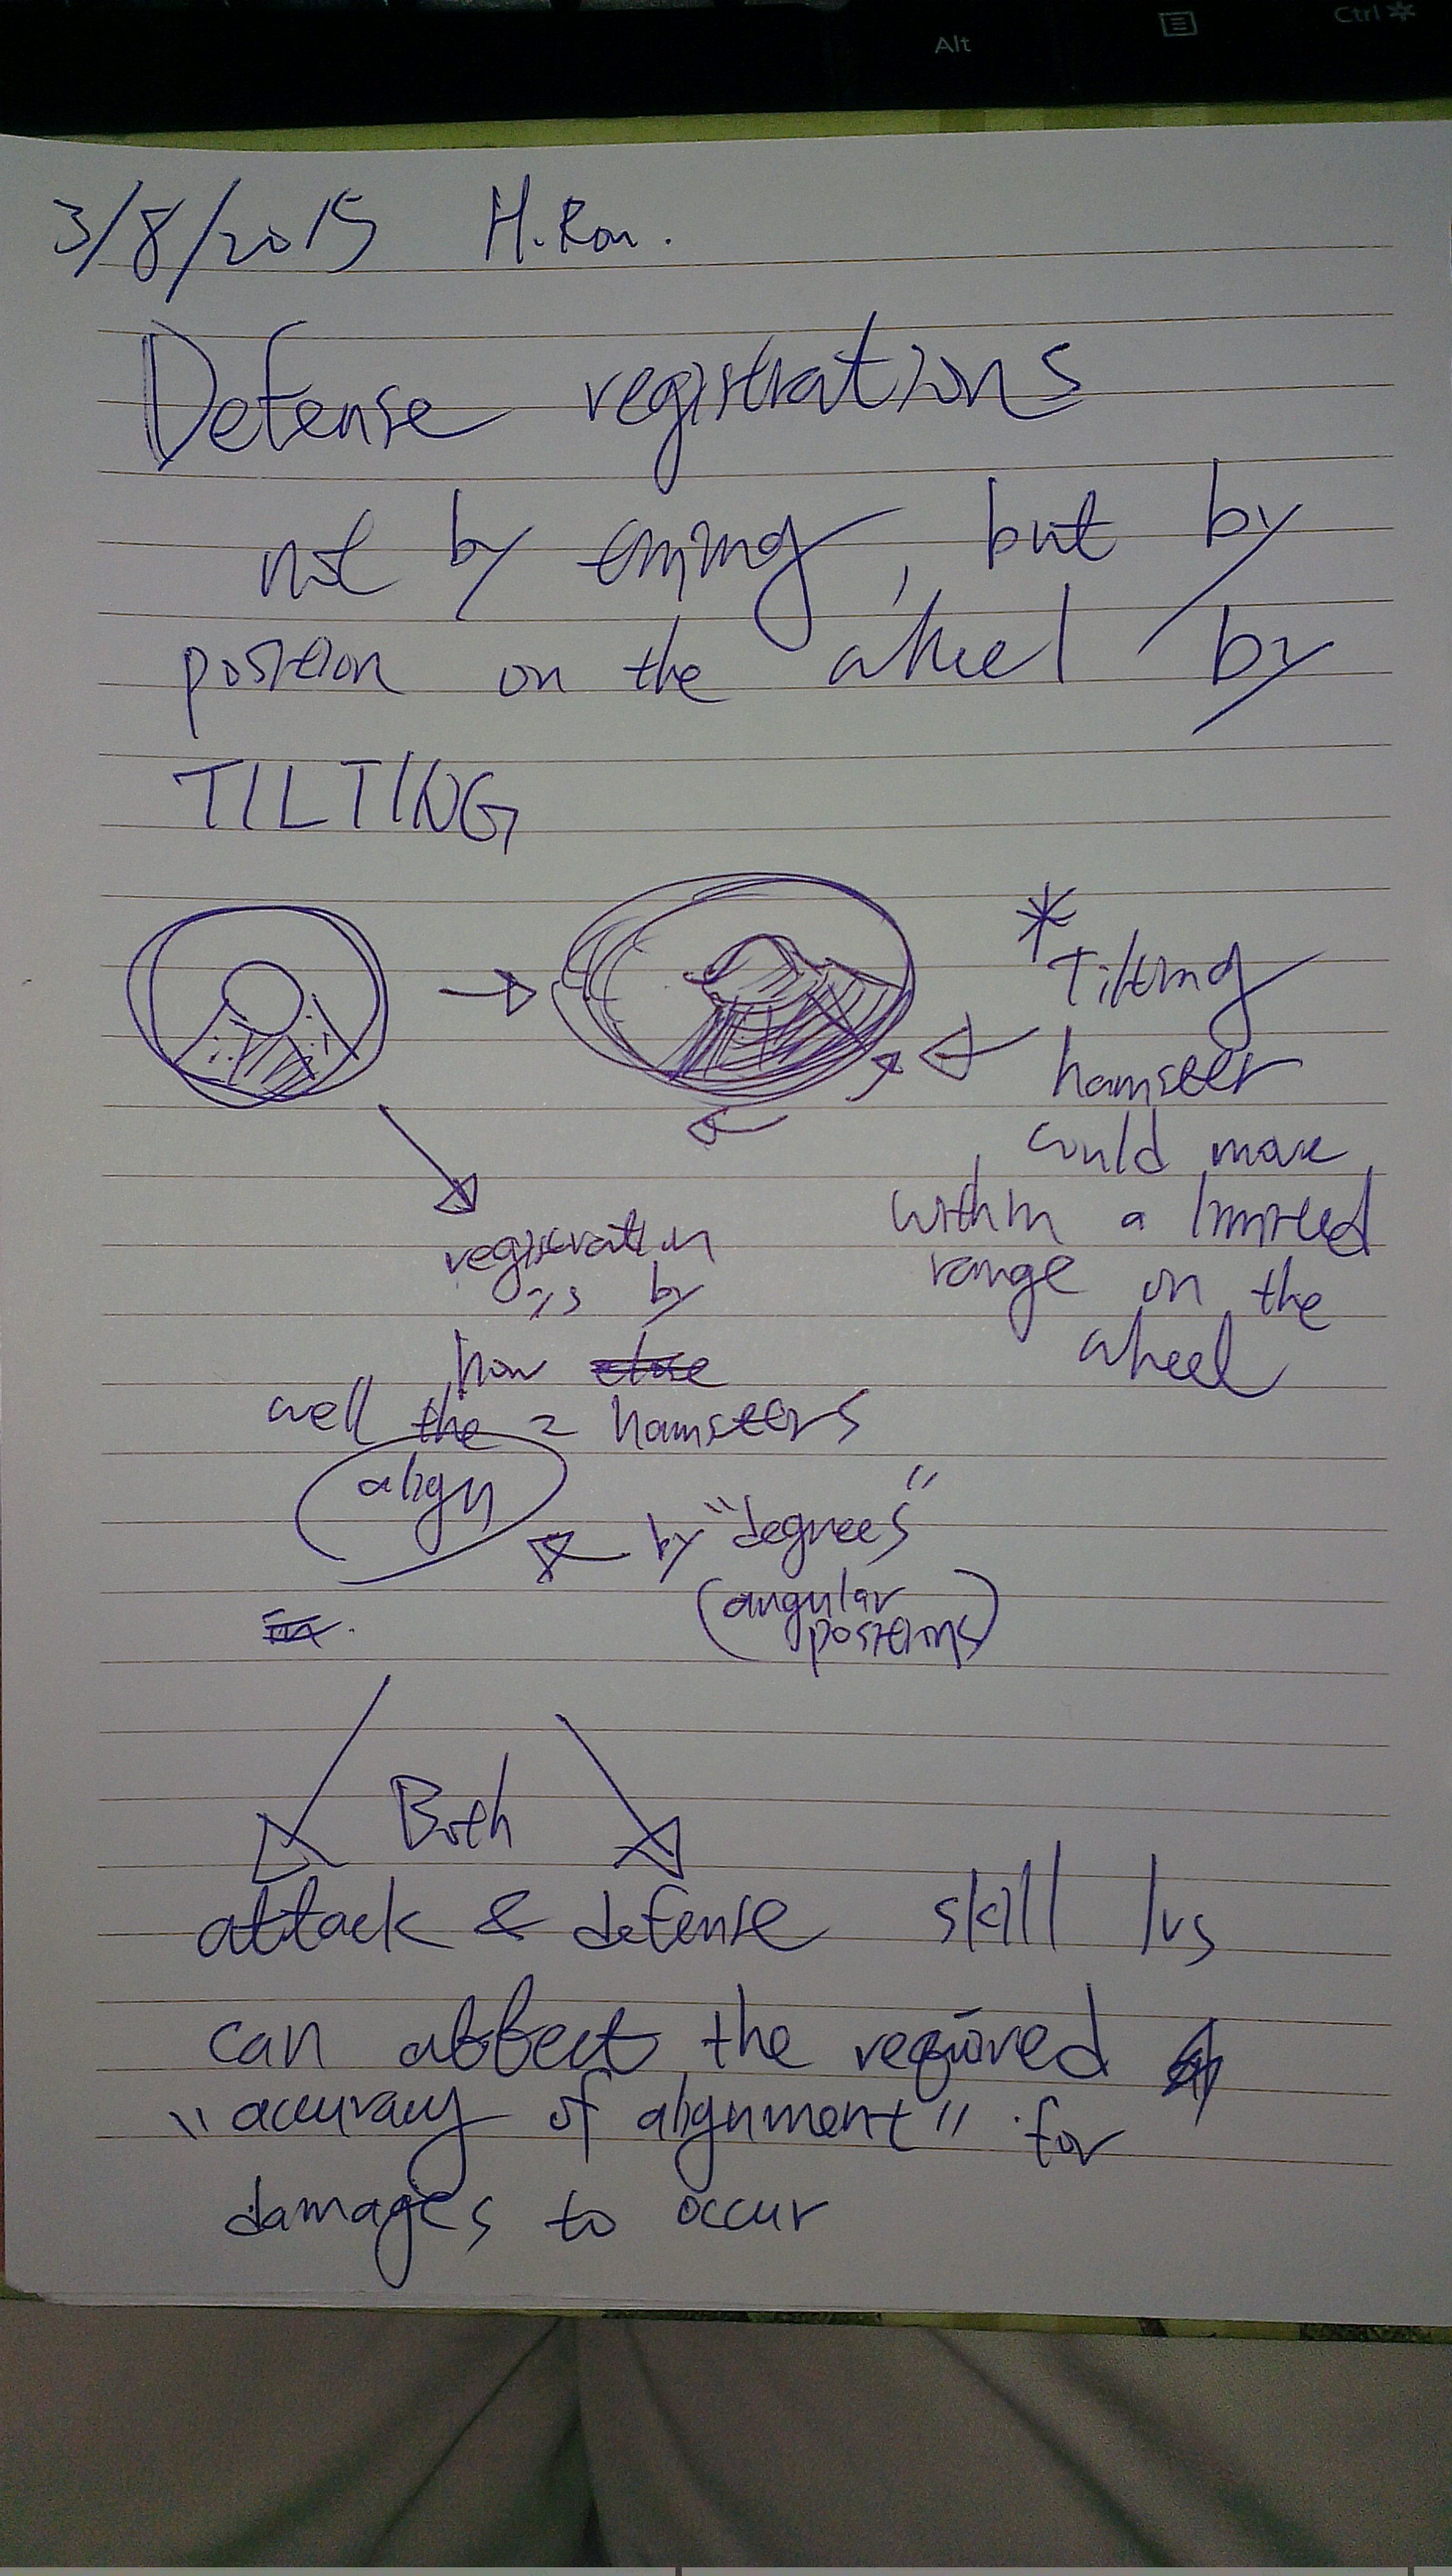 Alt
Ctrl
3/8/2015 H.Ron.
Defense registrations
not by timing, but by
position on the wheel by
TILTING
* Tilting
hamster
could move
within a limited
range on the
wheel
registration
is by
how close
well the 2 hamsters
align
by "degrees"
(angular
positions)
Both
attack & defense skill lvs
can affect the required
"accuracy of alignment" for
damages to occur